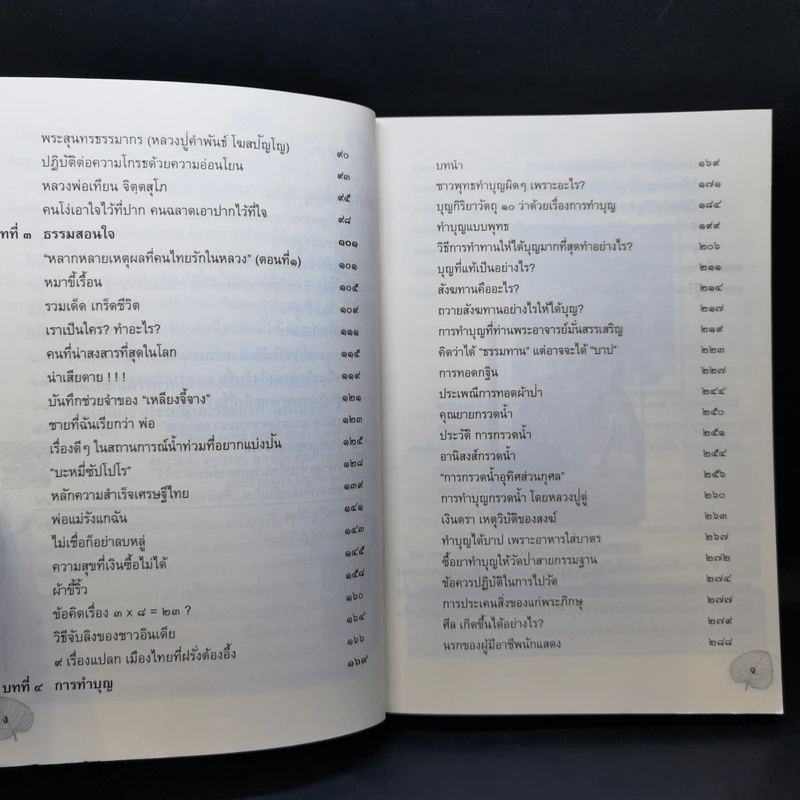 พระสุนทรธรรมากร (หลวงปู่คำพันธ์ โฆสปัญโญ) ๙๐
ปฏิบัติต่อความโกรธด้วยความอ่อนโยน ๙๓
หลวงพ่อเทียน จิตฺตสุโภ ๙๕
คนโง่เอาใจไว้ที่ปาก คนฉลาดเอาปากไว้ที่ใจ ๙๘
ทที่ ๓ ธรรมสอนใจ ๑๐๑
"หลากหลายเหตุผลที่คนไทยรักในหลวง" (ตอนที่๑) ๑๐๑
หมาขี้เรื้อน ๑๐๕
รวมเด็ด เกร็ดชีวิต ๑๐๙
เราเป็นใคร? ทำอะไร? ๑๑๑
คนที่น่าสงสารที่สุดในโลก ๑๑๕
น่าเสียดาย ! ! ! ๑๑๙
บันทึกช่วยจำของ "เหลียงจี้จาง" ๑๒๑
ชายที่ฉันเรียกว่า พ่อ ๑๒๓
เรื่องดีๆ ในสถานการณ์น้ำท่วมที่อยากแบ่งปัน ๑๒๕
"บะหมี่ซัปโปโร" ๑๒๘
หลักความสำเร็จเศรษฐีไทย ๑๓๙
พ่อแม่รังแกฉัน ๑๔๑
ไม่เชื่อก็อย่าลบหลู่ ๑๔๓
ความสุขที่เงินซื้อไม่ได้ ๑๔๕
ผ้าขี้ริ้ว ๑๕๘
ข้อคิดเรื่อง ๓ x ๘ = ๒๓ ? ๑๖๐
วิธีจับลิงของชาวอินเดีย ๑๖๔
๙ เรื่องแปลก เมืองไทยที่ฝรั่งต้องอึ้ง ๑๖๖
บทที่ ๔ การทำบุญ ๑๖๙
ง
บทนำ ๑๖๙
ชาวพุทธทำบุญผิดๆ เพราะอะไร? ๑๗๑
บุญกิริยาวัตถุ ๑๐ ว่าด้วยเรื่องการทำบุญ ๑๘๔
ทำบุญแบบพุทธ ๑๙๙
วิธีการทำทานให้ได้บุญมากที่สุดทำอย่างไร? ๒๐๖
บุญที่แท้เป็นอย่างไร? ๒๑๑
สังฆทานคืออะไร? ๒๑๔
ถวายสังฆทานอย่างไรให้ได้บุญ? ๒๑๗
การทำบุญที่ท่านพระอาจารย์มั่นสรรเสริญ ๒๑๙
คิดว่าได้ "ธรรมทาน" แต่อาจจะได้ "บาป" ๒๒๓
การทอดกฐิน ๒๒๗
ประเพณีการทอดผ้าป่า ๒๔๔
คุณยายกรวดน้ำ ๒๕๐
ประวัติ การกรวดน้ำ ๒๕๑
อานิสงส์กรวดน้ำ ๒๕๔
"การกรวดน้ำอุทิศส่วนกุศล" ๒๕๖
การทำบุญกรวดน้ำ โดยหลวงปู่ดู่ ๒๖๐
เงินตรา เหตุวิบัติของสงฆ์ ๒๖๓
ทำบุญได้บาป เพราะอาหารใส่บาตร ๒๖๗
ซื้อยาทำบุญให้วัดป่าสายกรรมฐาน ๒๗๒
ข้อควรปฏิบัติในการไปวัด ๒๗๔
การประเคนสิ่งของแก่พระภิกษุ ๒๗๗
ศีล เกิดขึ้นได้อย่างไร? ๒๗๙
นรกของผู้มีอาชีพนักแสดง ๒๘๘
จ